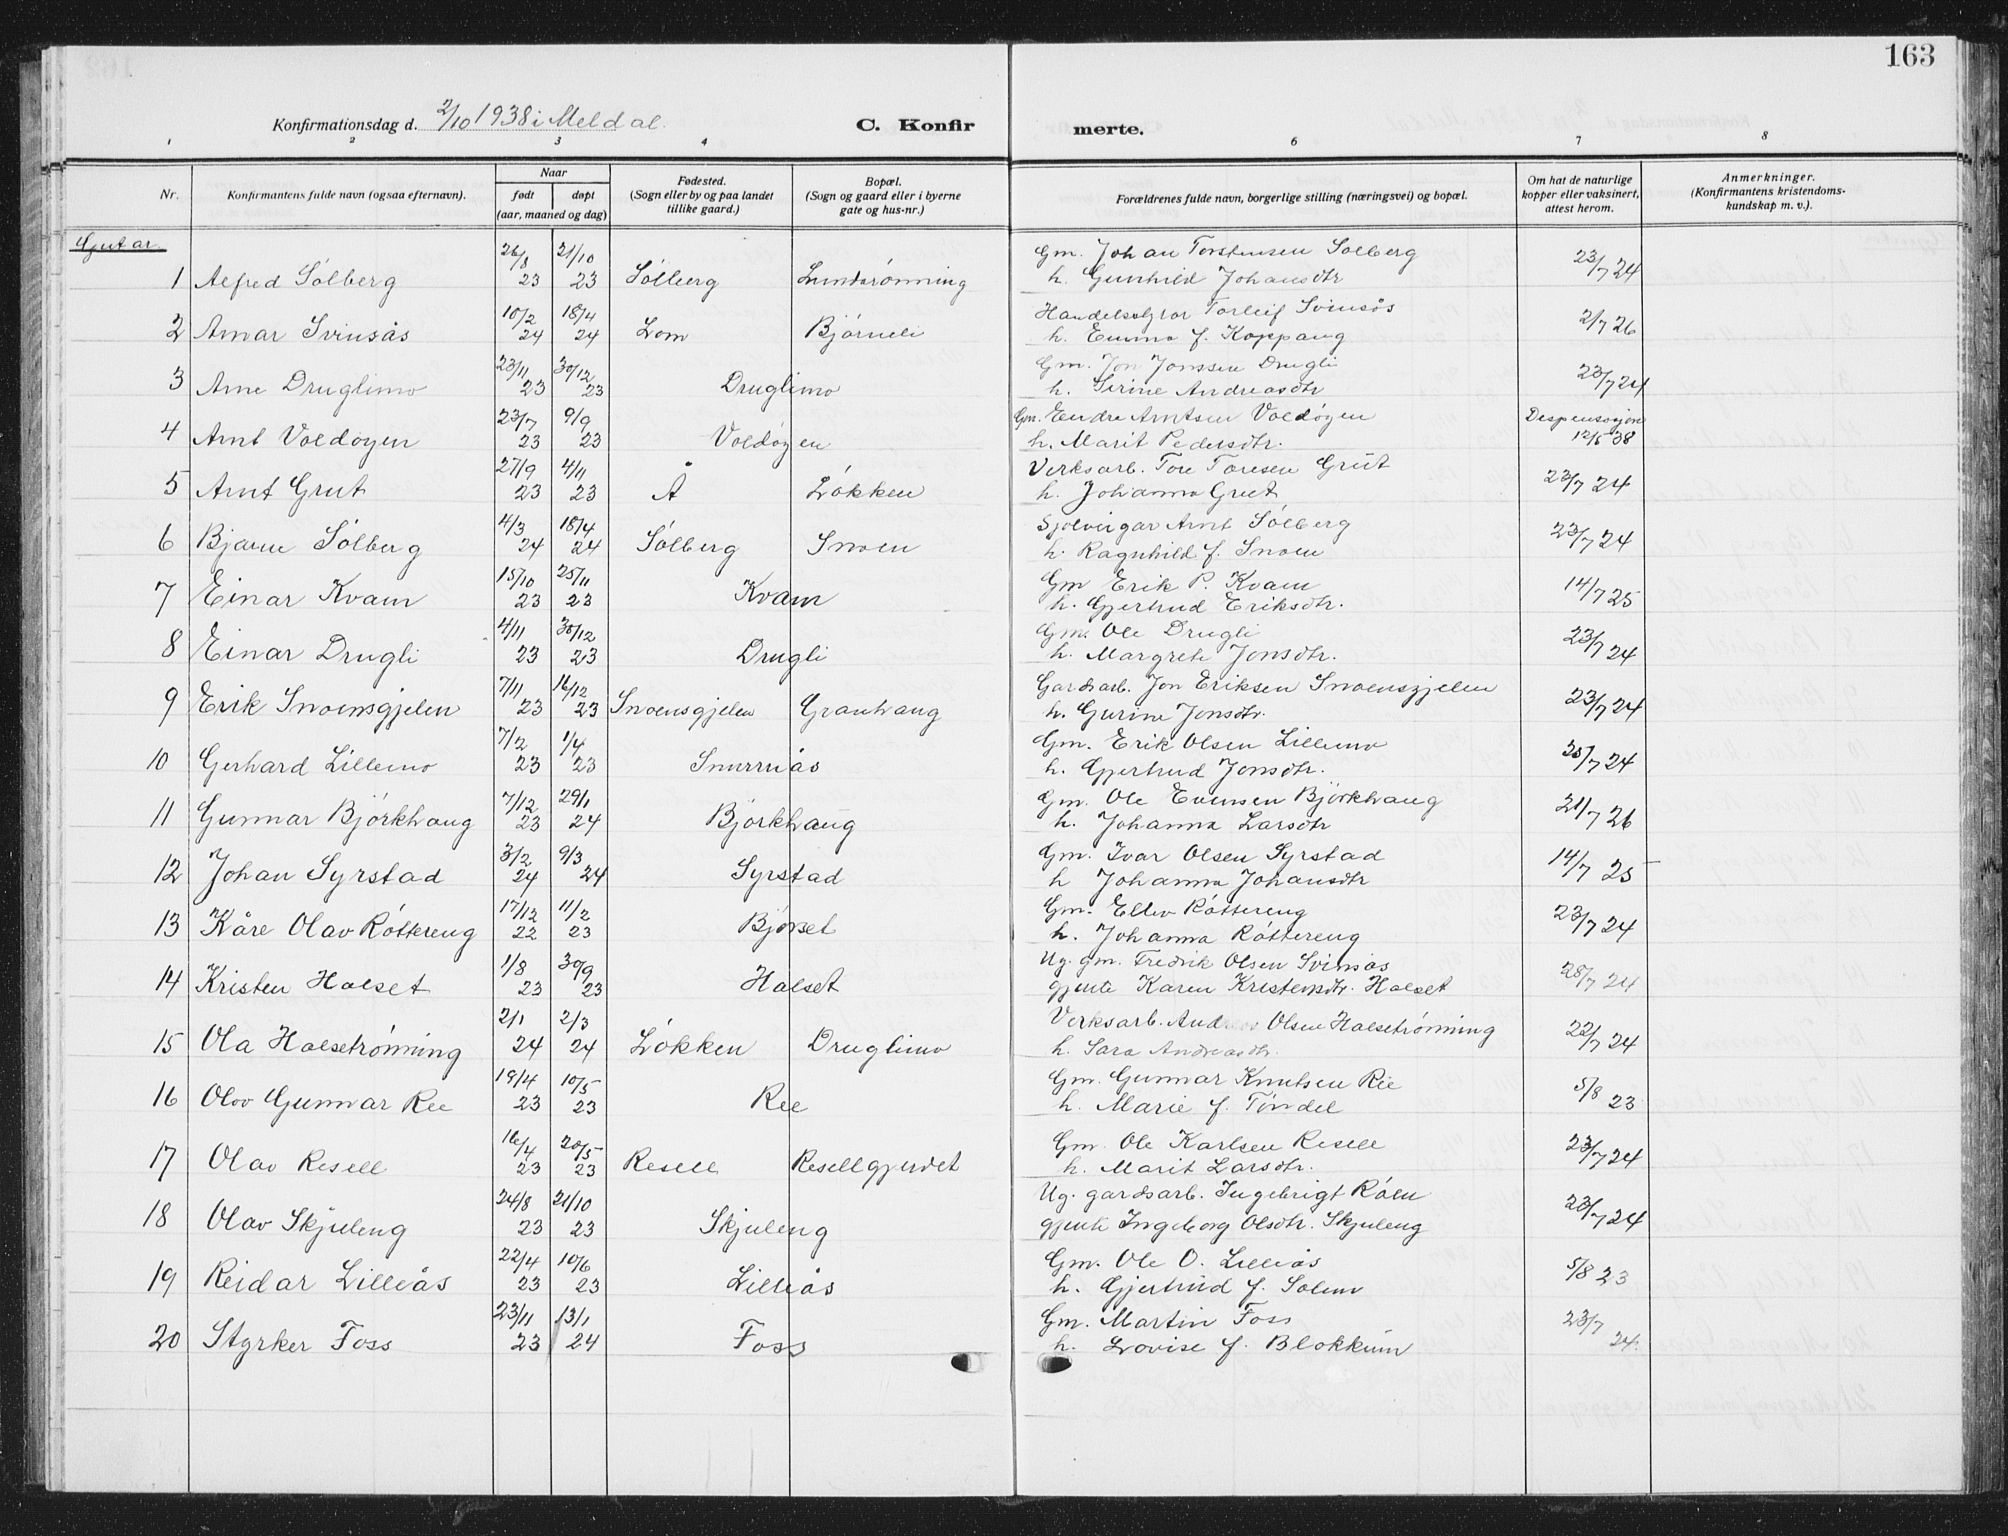 163
Konfirmationsdag d. 2/10 1938 i Meldal. C. Konfirmerte.
1 2 3 4 6 7 8
Nr. Konfirmantens fulde navn (ogsaa efternavn). Naar født døpt (aar, maaned og dag) Fødested. (Sogn eller by og paa landet tillike gaard.) Bopæl. (Sogn og gaard eller i byerne gate og hus-nr.) Forældrenes fulde navn, borgerlige stilling (næringsvei) og bopæl. Om hat de naturlige kopper eller vaksinert, attest herom. Anmerkninger. (Konfirmantens kristendoms-kundskap m. v.).
Gutar.
26/8 21/10 Gm. Johan Torstensen Solberg
1 Alfred Sólberg 23 23 Sólberg Lundsrónning h. Gunhild Johansdtr 23/7 24
10/2 18/4 Torleif Svinsås
2 Amar Svinsås 24 24 Lom Bjórneli h. Emma f. Koppang 2/7 26
23/11 30/12 Gm. Jon Jonssen Drugli
3 Arne Druglimo 23 23 Druglimo h. Serine Andreasdtr 23/7 24
23/7 9/9 Gm. Endre Arntsen Voldóyen Despensasjon
4 Arnt Voldóyen 23 23 Voldóyen h. Marit Pedersdtr. 12/5 38
27/9 4/11 Verksarb. Tore Toresen Grut
5 Arnt Grut 23 23 Å Lókken h. Johanna Grut 23/7 24
4/3 18/4 Sjolveigar Arnt Sólberg
6 Bjarne Sólberg 24 24 Sólberg Snoen h. Ragnhild f. Snoen 23/7 24
15/10 25/11 Gm Erik P. Kvam
7 Einar Kvam 23 23 Kvam h. Gjertrud Eriksdtr. 14/7 25
4/11 30/12 Gm. Ole Drugli
8 Einar Drugli 23 23 Drugli h. Margrete Jonsdtr. 23/7 24
7/11 16/12 Gardsarb. Jon Eriksen Snoensgjelen
9 Erik Snoensgjelen 23 23 Snoensgjelen Granhaug h. Gurine Jonsdtr. 23/7 24
7/2 1/4 Gm. Erik Olsen Lillemo
10 Gerhard Lillemo 23 23 Snurruås h. Gjertrud Jonsdtr. 7 24
7/12 29/1 Gm. Ole Evensen Bjórkhaug
11 Gunnar Bjórkhaug 23 24 Bjórkhaug h. Johanna Larsdtr 21/7 26
3/2 9/3 Gm. Ivar Olsen Syrstad
12 Johan Syrstad 24 24 Syrstad h Johanna Johansdtr 14/7 25
17/12 11/2 Gm. Ellev Róttereng
13 Kåre Olav Róttereng 22 23 Bjórset h. Johanna Róttereng 23/7 24
1/8 30/9 Ug. gm. Fredrik Olsen Svinsås
14 Kristen Halset 23 23 Halset gjente Karen Kristensdtr. Halset 28/7 24
2/1 2/3 Verksarb. Olsen Halsetrónning
15 Ola Halsetrónning 24 24 Lókken Druglimo h. Sara Andreasdtr. 22/7 24
19/4 10/5 Gm. Gunnar Knutsen Rie
16 Olav Gunnar Ree 23 23 Ree h. Marie f. Tóndel 5/8 23
16/4 20/5 Gm. Ole Karlsen Resell
17 Olav Resell 23 23 Resell Resellgjerdet h. Marit Larsdtr. 23/7 24
24/8 21/10 Ug. gardsarb. Ingebrigt Róen
18 Olav Skjuleng 23 23 Skjuleng gjente Ingeborg Olsdtr. Skjuleng 23/7 24
22/4 10/6 Gm. Ole O. Lilleås
19 Reidar Lilleås 23 23 Lilleås h. Gjertrud f. Solem 5/8 23
23/11 13/1 Gm. Martin Foss 23/7
20 Styrker Foss 23 24 Foss h. Lovise f. Blokkum 24.